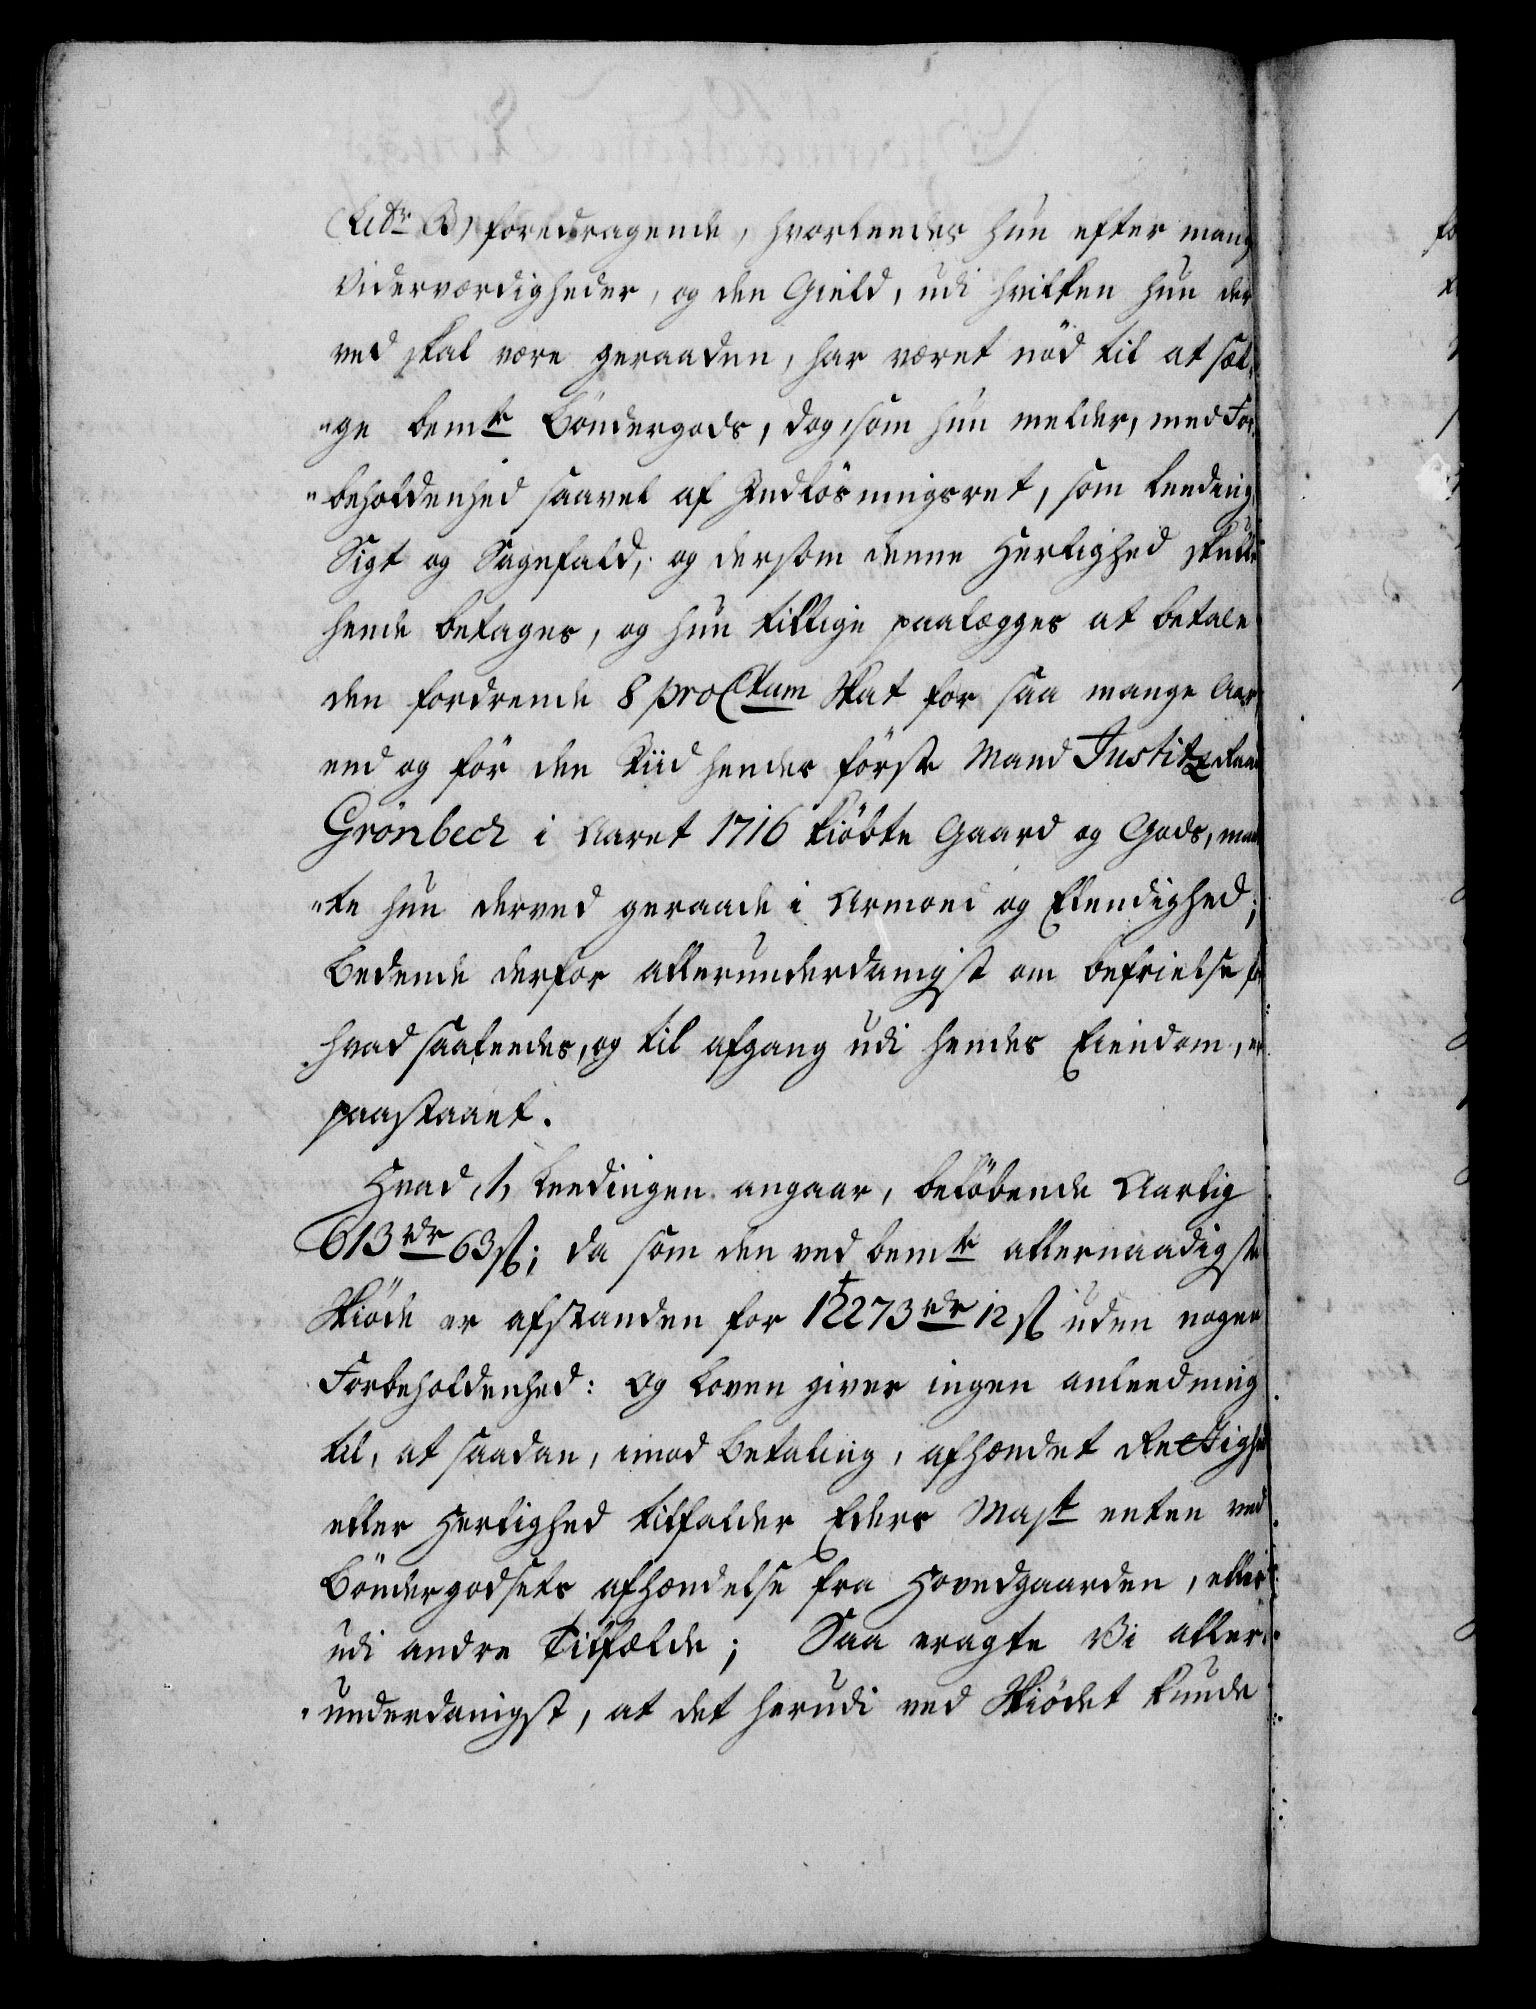 (Litr B) foredragende, hvorlendes hun efter mang
Viderværdigheder, og den Gield, udi hvilken hun der
ved skal være geraaden, har været nød til at sæl-
"ge bemte Bøndergods, dog, som hun melder, med For-
"beholdenhed saavel af Indløsningsret, som Leeding,
Sigt og Sagefald, og dersom denne Herlighed skulle
hende betages, og hun tillige paalægges at betale
den fordrende 8 proCtum Skat for saa mange Aar
end og før den Tiid hendes første Mand Justitz Raad
Grönbech i Aaret 1716 kiøbte Gaard og Gods, maa
"te hun derved geraade i Armoed og Elendighed;
Bedende derfor allerunderdanigst om befrielse for
hvad saaleedes, og til afgang udi hendes Eiendom, er
paastaaet.
Hvad 1, Leedingen angaar, beløbende Aarlig
613 rdr 63 ß; da som den ved bemte allernaadigste
Skiøde er afstanden for 12273 rdr 12 ß uden nogen
Forbeholdenhed: Og Loven giver ingen anleedning
til, at saadan, imod Betaling, afhændet Rettighed
eller Herlighed tilfalder Eders Mayt enten ved
Bøndergodsets afhændelse fra Hovedgaarden, eller
udi andre Tilfælde; Saa eragte Vi aller-
"underdanigst, at det herudi ved Skiødet kunde